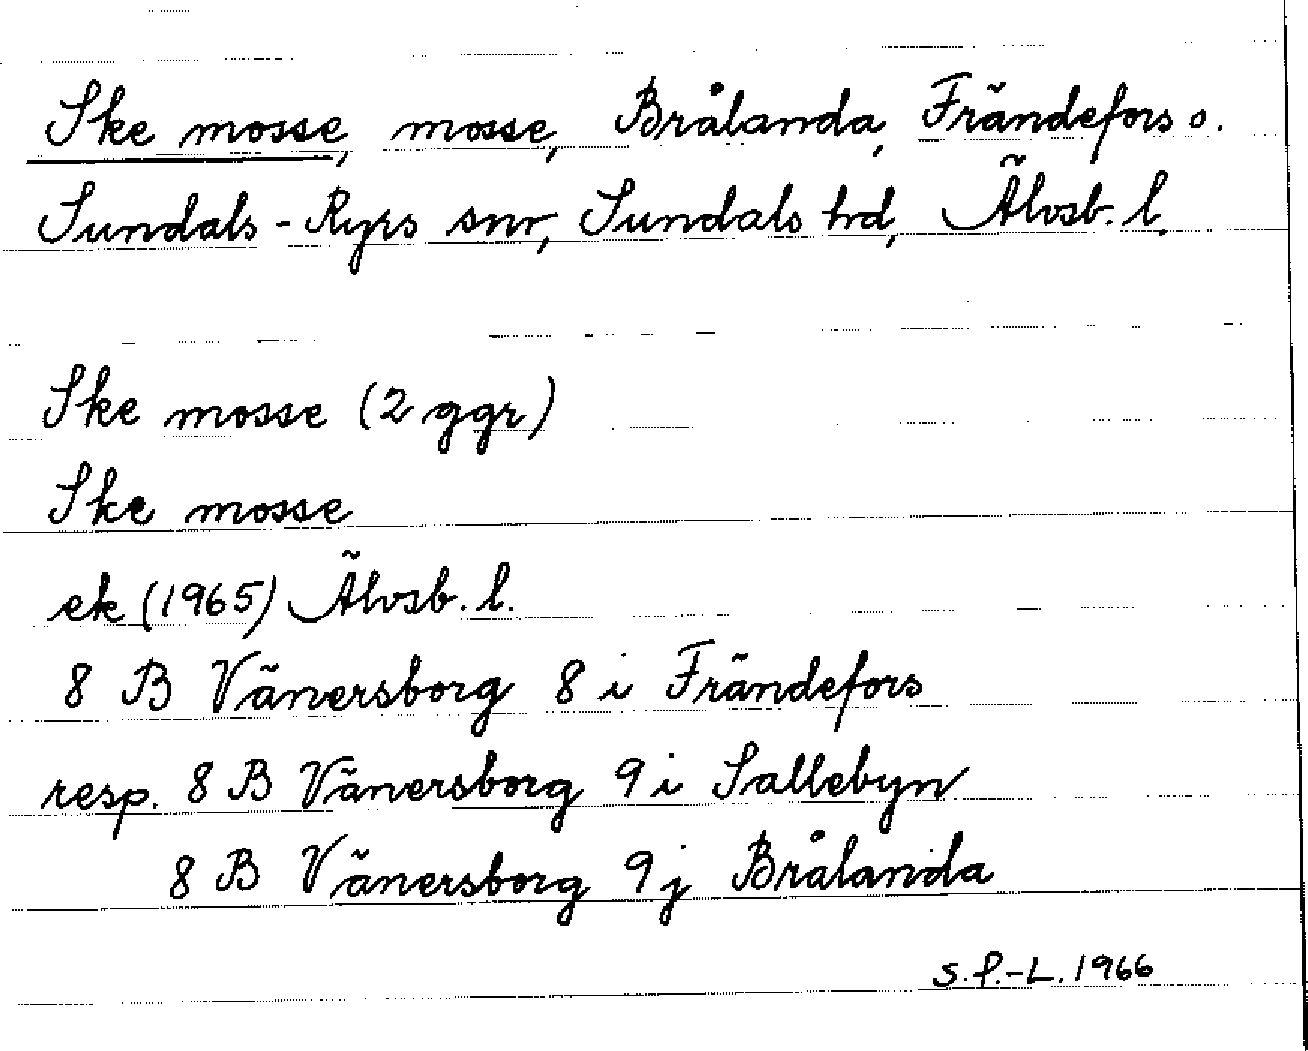 Ske mosse, mosse, Brålanda, Frändefors o.
Sundals-Ryrs snr, Sundals hd, Älvsb. l.
Ske mosse (2 ggr)
Ske mosse
ek (1965) Älvsb. l.
8 B Vänersborg 8 i Frändefors
resp. 8 B Vänersborg 9 i Sallebyn
8 B Vänersborg 9 j Brålanda
S.P.-L. 1966